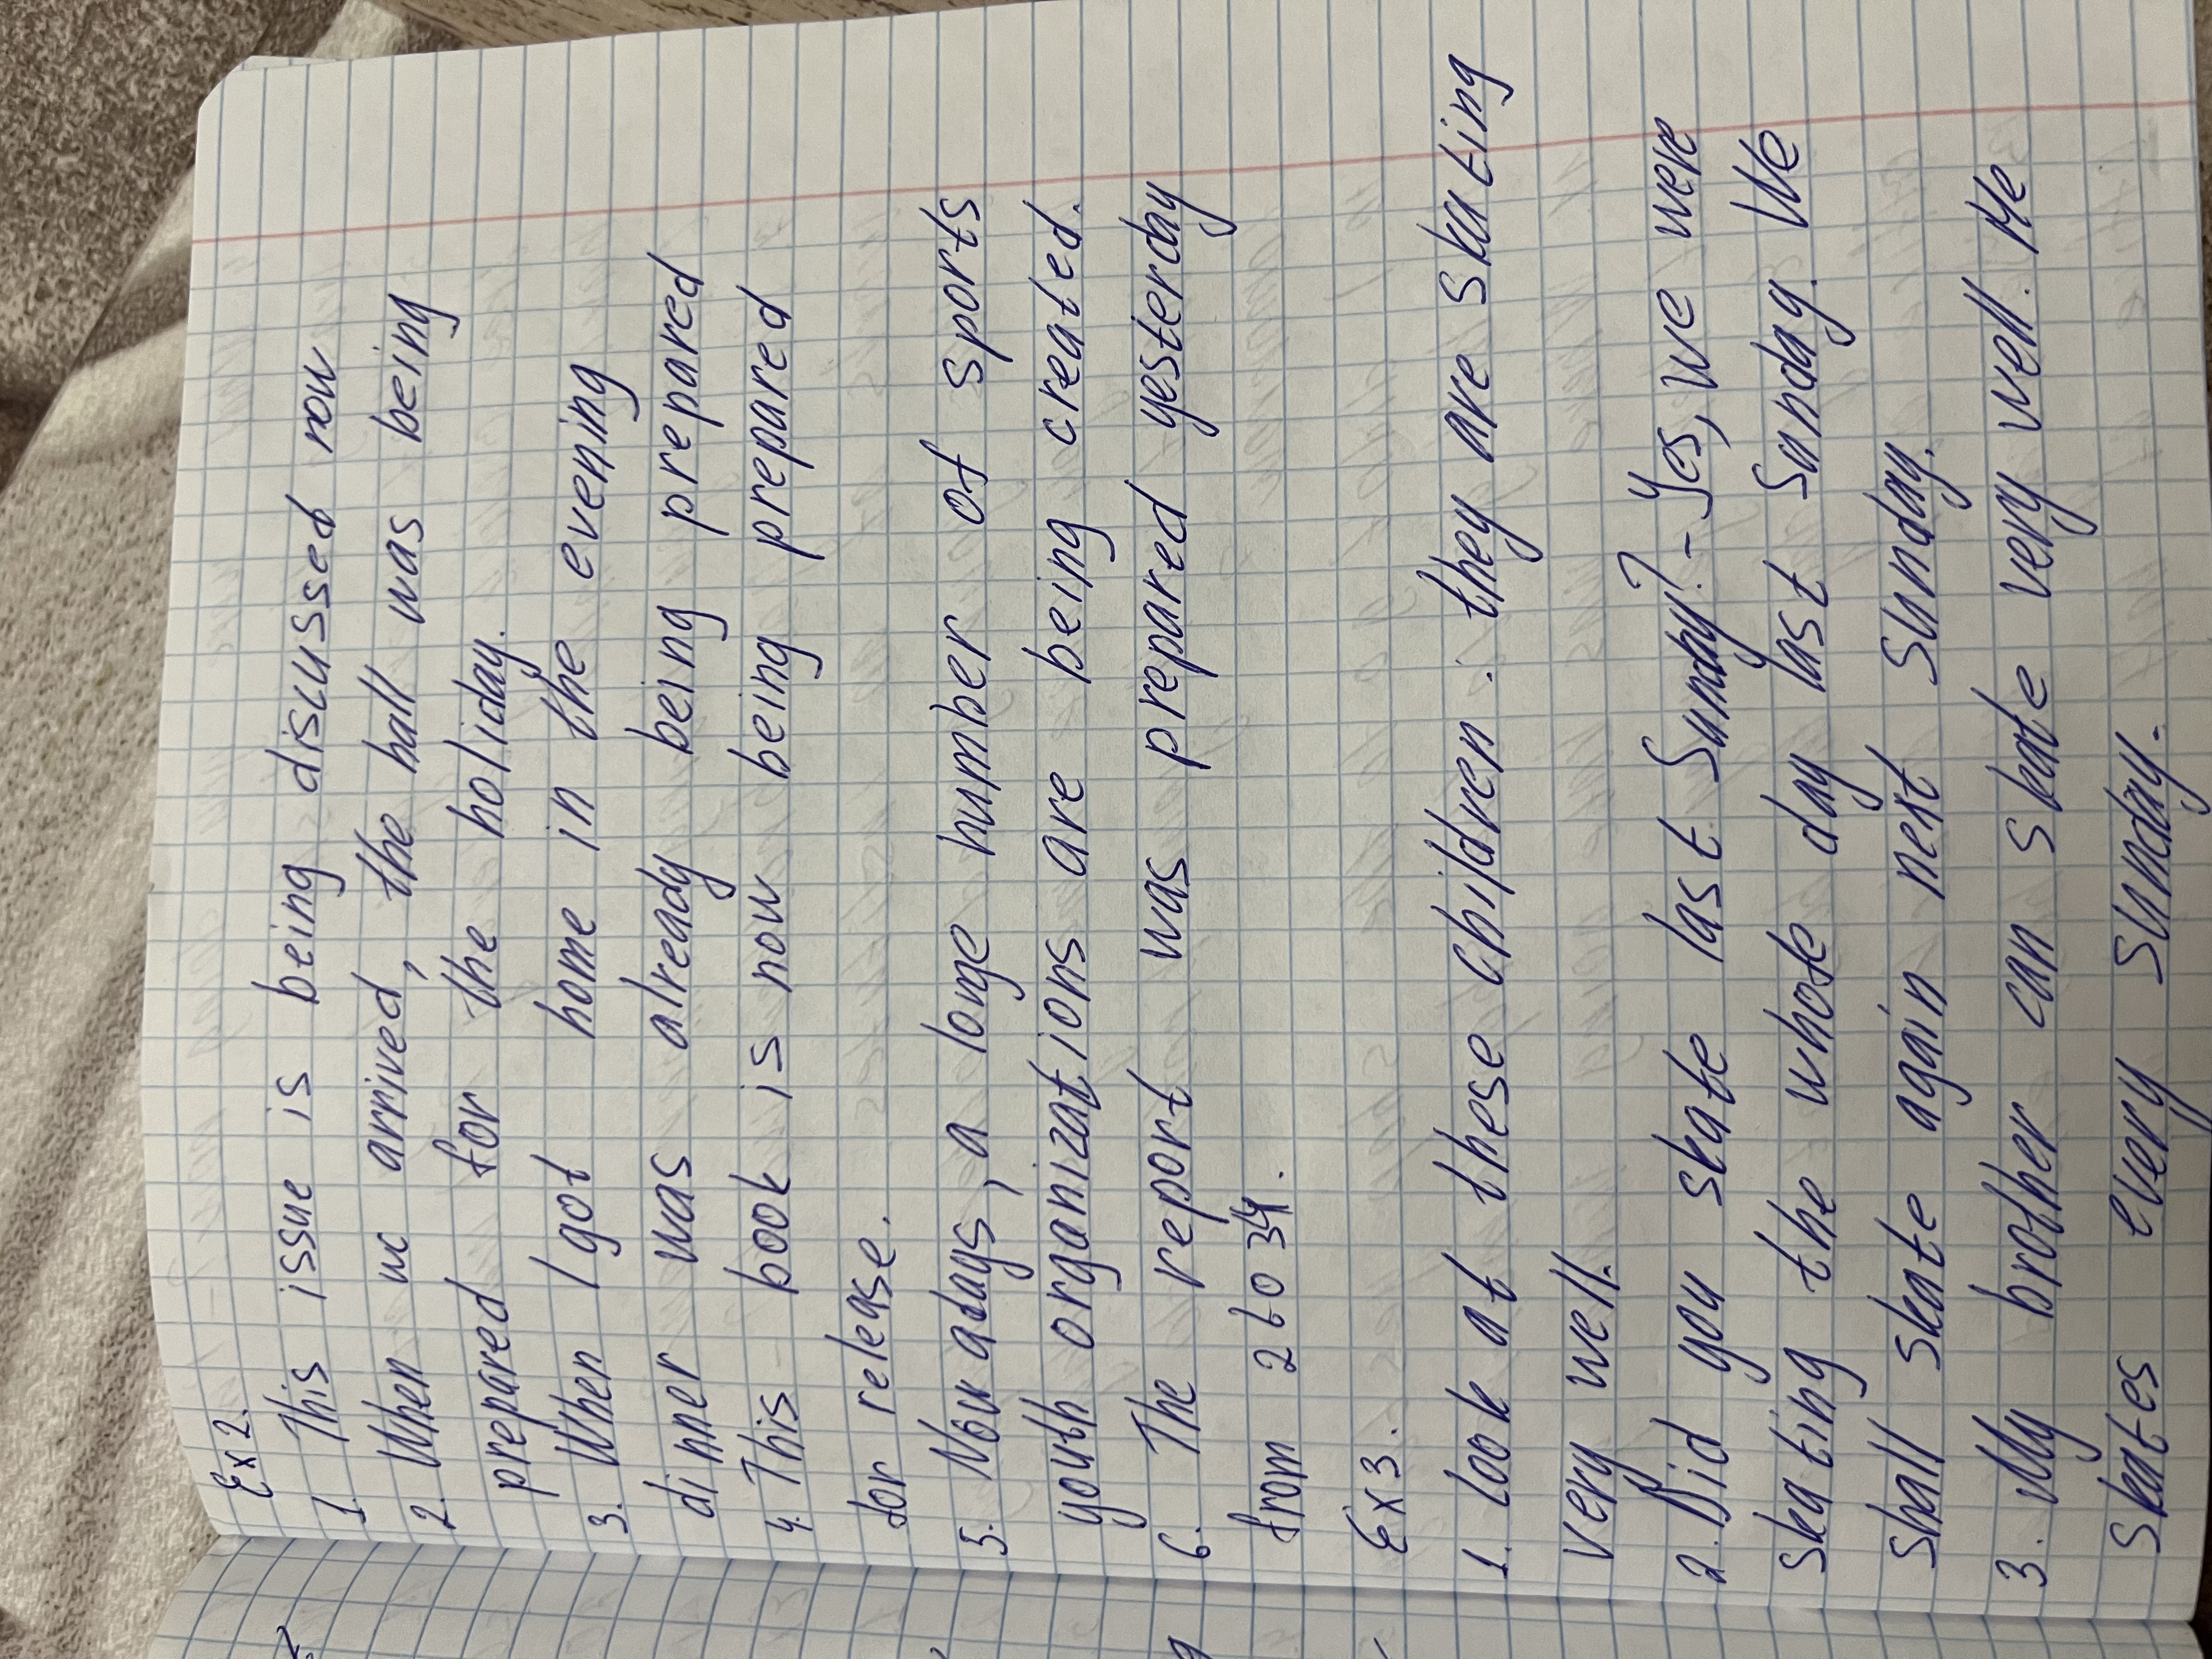 Ex 2.
1. This issue is being discussed now
2. When we arrived, the hall was being
prepared for the holiday.
3. When I got home in the evening
dinner was already being prepared
4. This book is now being prepared
for release.
5. Nowadays, a longe number of sports
youth organizations are being created.
6. The report was prepared yesterday
from 2 to 34.
Ex 3.
1. Look at these children: they are skating
very well.
2. Did you skate last Sunday? - Yes, we were
skating the whole day last Sunday. We
shall skate again next Sunday.
3. My brother can skate very well. He
skates every Sunday.